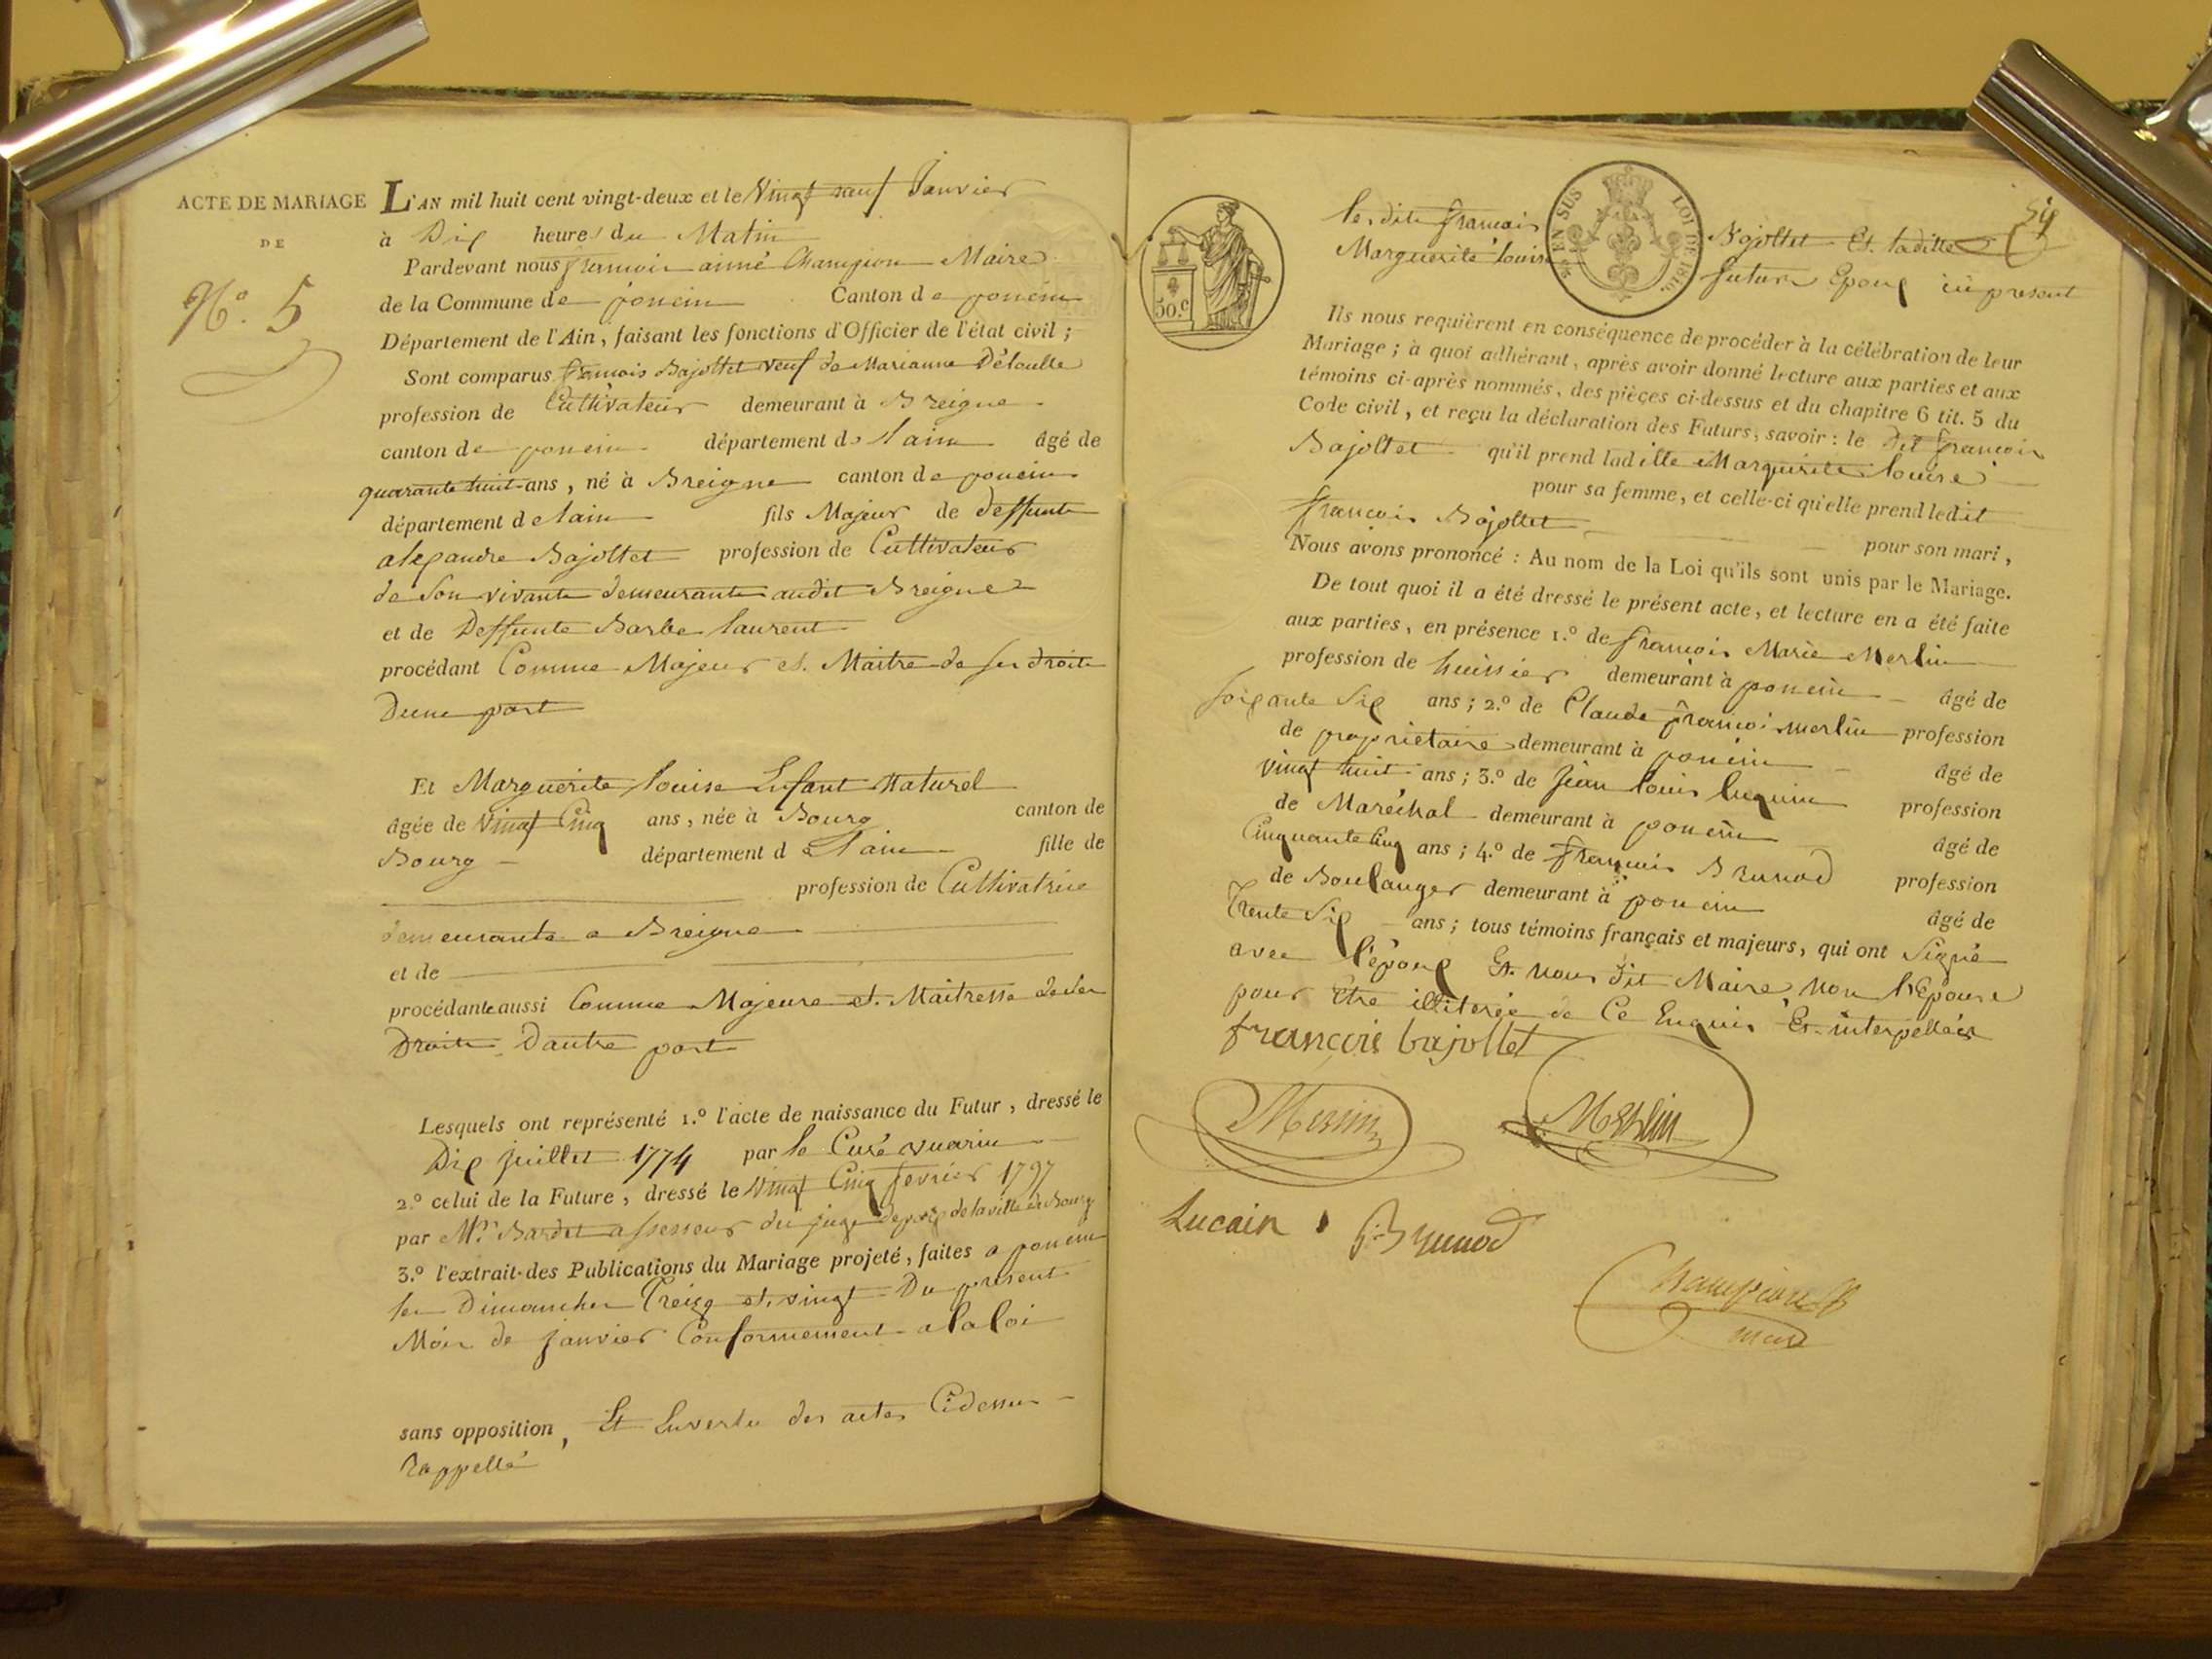 ACTE DE MARIAGE
DE
N.° 5
L'AN mil huit cent vingt-deux et le Vingt neuf Janvier
à Dix heures du Matin
Pardevant nous françois aimé Champion Maire
de la Commune de poncin Canton de poncin
Département de l'Ain, faisant les fonctions d'Officier de l'état civil ;
Sont comparus françois Bajollet veuf de Marianne
profession de Cultivateur demeurant à Breigne
canton de poncin département de lain âgé de
quarante huit ans, né à Breigne canton de poncin
département de lain fils Majeur de deffunt
alexandre Bajollet profession de Cultivateur
de son vivant demeurante audit Breigne
et de Deffunte Barbe laurent
procédant Comme Majeur et Maitre de ses droits
Dune part
Et Marguerite louise Enfant Naturel
âgée de Vingt Cinq ans, née à Bourg canton de
Bourg département de lain fille de
profession de Cultivatrice
demeurante a Breigne
et de
procédante aussi Comme Majeure et Maitresse de ses
Droits Dautre part
Lesquels ont représenté 1.° l'acte de naissance du Futur, dressé le
Dix juillet 1774 par le Curé vuarin
2.° celui de la Future, dressé le Vingt Cinq fevrier 1797
par Mr. Bardet assesseur du juge depaix de la ville de Bourg
3.° l'extrait des Publications du Mariage projeté, faites a poncin
les Dimanches Treize et vingt Du present
Mois de janvier Conformement a la loi
sans opposition, Et Envertu des actes Cidessus
Rappellé
50.c
EN SUS LOI DE 1816.
lesdits françois Bajollet Et laditte
Marguerite louise futurs Epoux icy present
Ils nous requièrent en conséquence de procéder à la célébration de leur
Mariage ; à quoi adhérant, après avoir donné lecture aux parties et aux
témoins ci-après nommés, des pièces ci-dessus et du chapitre 6 tit. 5 du
Code civil, et reçu la déclaration des Futurs, savoir : le dit françois
Bajollet qu'il prend laditte Marguerite louise
pour sa femme, et celle-ci qu'elle prend ledit
françois Bajollet pour son mari,
Nous avons prononcé : Au nom de la Loi qu'ils sont unis par le Mariage.
De tout quoi il a été dressé le présent acte, et lecture en a été faite
aux parties, en présence 1.° de françois Marie Merlin
profession de huissier demeurant à poncin âgé de
soixante six ans ; 2.° de Claude françois merlin profession
de propriétaire demeurant à poncin âgé de
vingt huit ans ; 3.° de Jean louis profession
de Maréchal demeurant à poncin âgé de
Cinquante Cinq ans ; 4.° de françois Brunod profession
de Boulanger demeurant à poncin âgé de
Trente Six ans ; tous témoins français et majeurs, qui ont Signé
avec l'époux Et nous dit Maire, non l'Epouse
pour être illiterée de Ce Enquis Et interpellés
françois bajollet
Merlin Merlin
Lucain Brunod
Champion